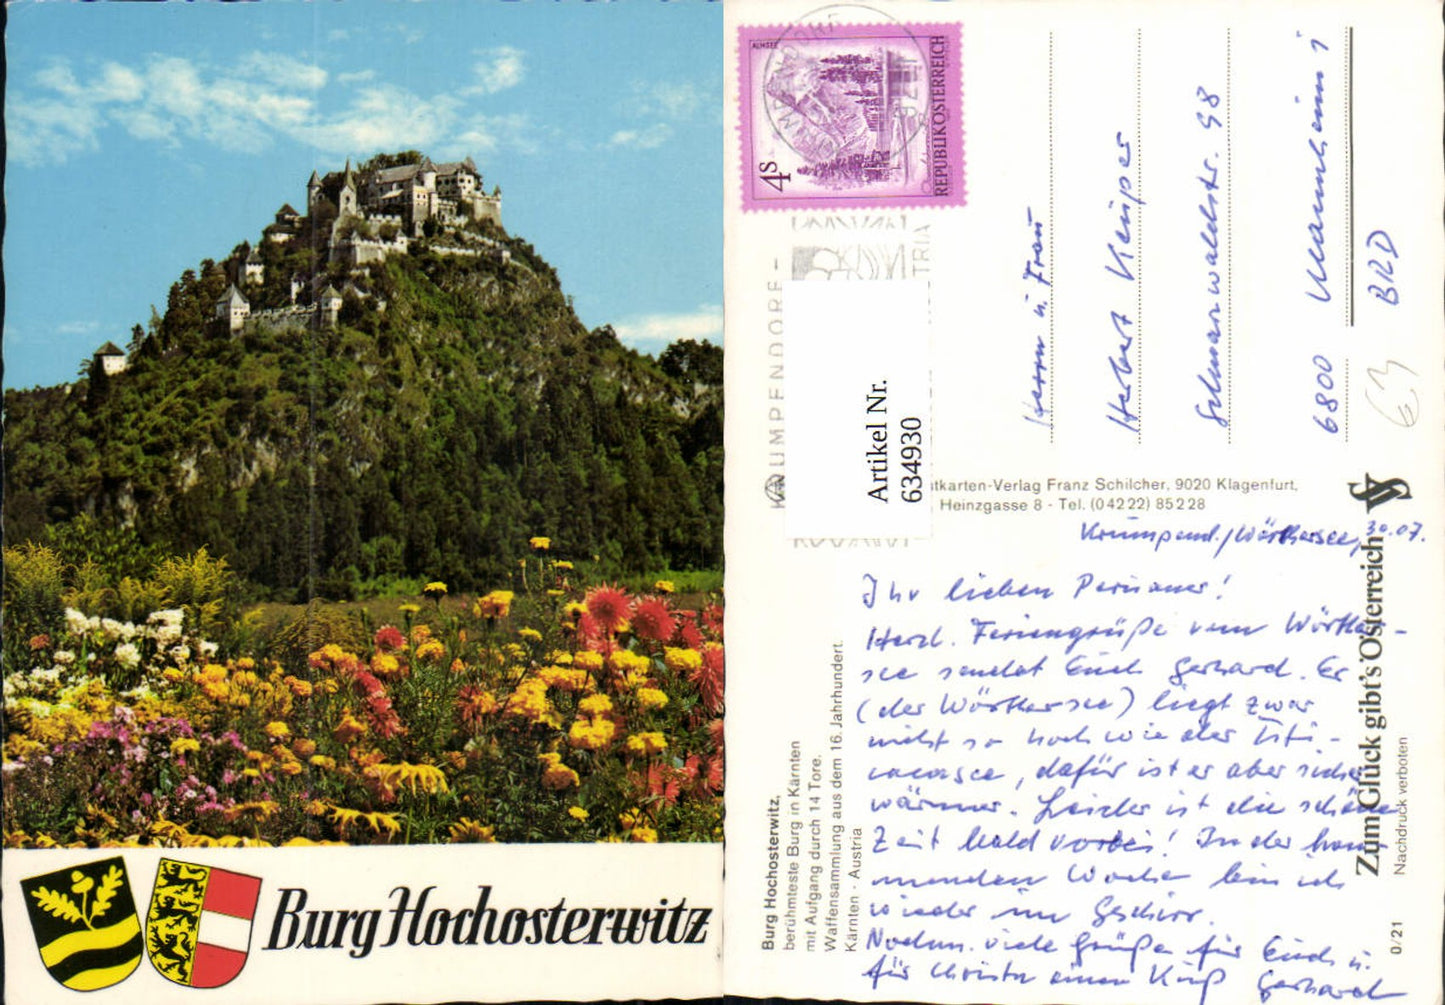 Burg Hochosterwitz
ALMSEE
4S
REPUBLIK ÖSTERREICH
KRUMPENDORF
Artikel Nr.
634930
Herrn u. Frau
Herbert
Schwarzwaldstr. 98
6800 Mannheim 1
BRD
63
stkarten-Verlag Franz Schilcher, 9020 Klagenfurt,
Heinzgasse 8 - Tel. (04222) 85228
Krumpend./Wörthersee, 30.07.
Ihr lieben
Herzl. Feriengrüße vom Wörther-
see sendet Euch Gerhard. Er
(der Wörthersee) liegt zwar
nicht so hoch wie der Titi-
cacasee, dafür ist er aber sicher
wärmer. Leider ist die schöne
Zeit bald vorbei! In der kom-
menden Woche bin ich
wieder im Geschirr.
Nochm. viele Grüße für Euch u.
für Christa einen Kuß Gerhard
Burg Hochosterwitz,
berühmteste Burg in Kärnten
mit Aufgang durch 14 Tore.
Waffensammlung aus dem 16. Jahrhundert.
Kärnten - Austria
Zum Glück gibt's Österreich
Nachdruck verboten
0/21